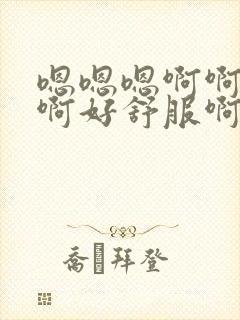 嗯嗯嗯啊啊
啊好舒服啊
乔拜登